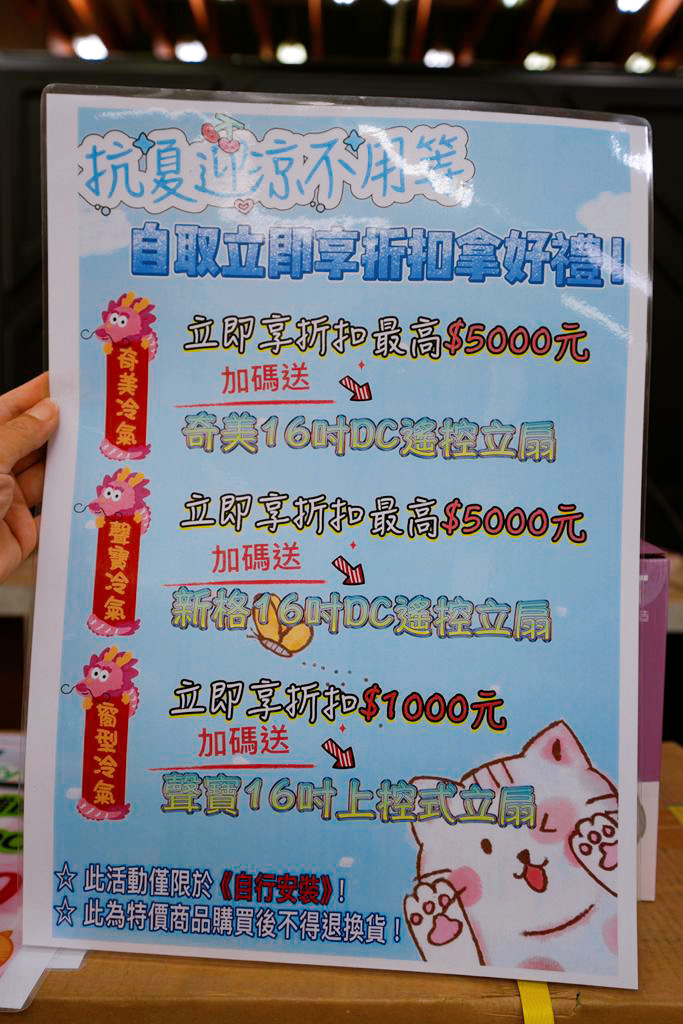 抗夏迎涼不用等
自取立即享折扣拿好禮!
奇美冷氣
立即享折扣最高$5000元
加碼送
奇美16吋DC遙控立扇
聲寶冷氣
立即享折扣最高$5000元
加碼送
新格16吋DC遙控立扇
窗型冷氣
立即享折扣$1000元
加碼送
聲寶16吋上控式立扇
☆ 此活動僅限於《自行安裝》!
☆ 此為特價商品購買後不得退換貨!